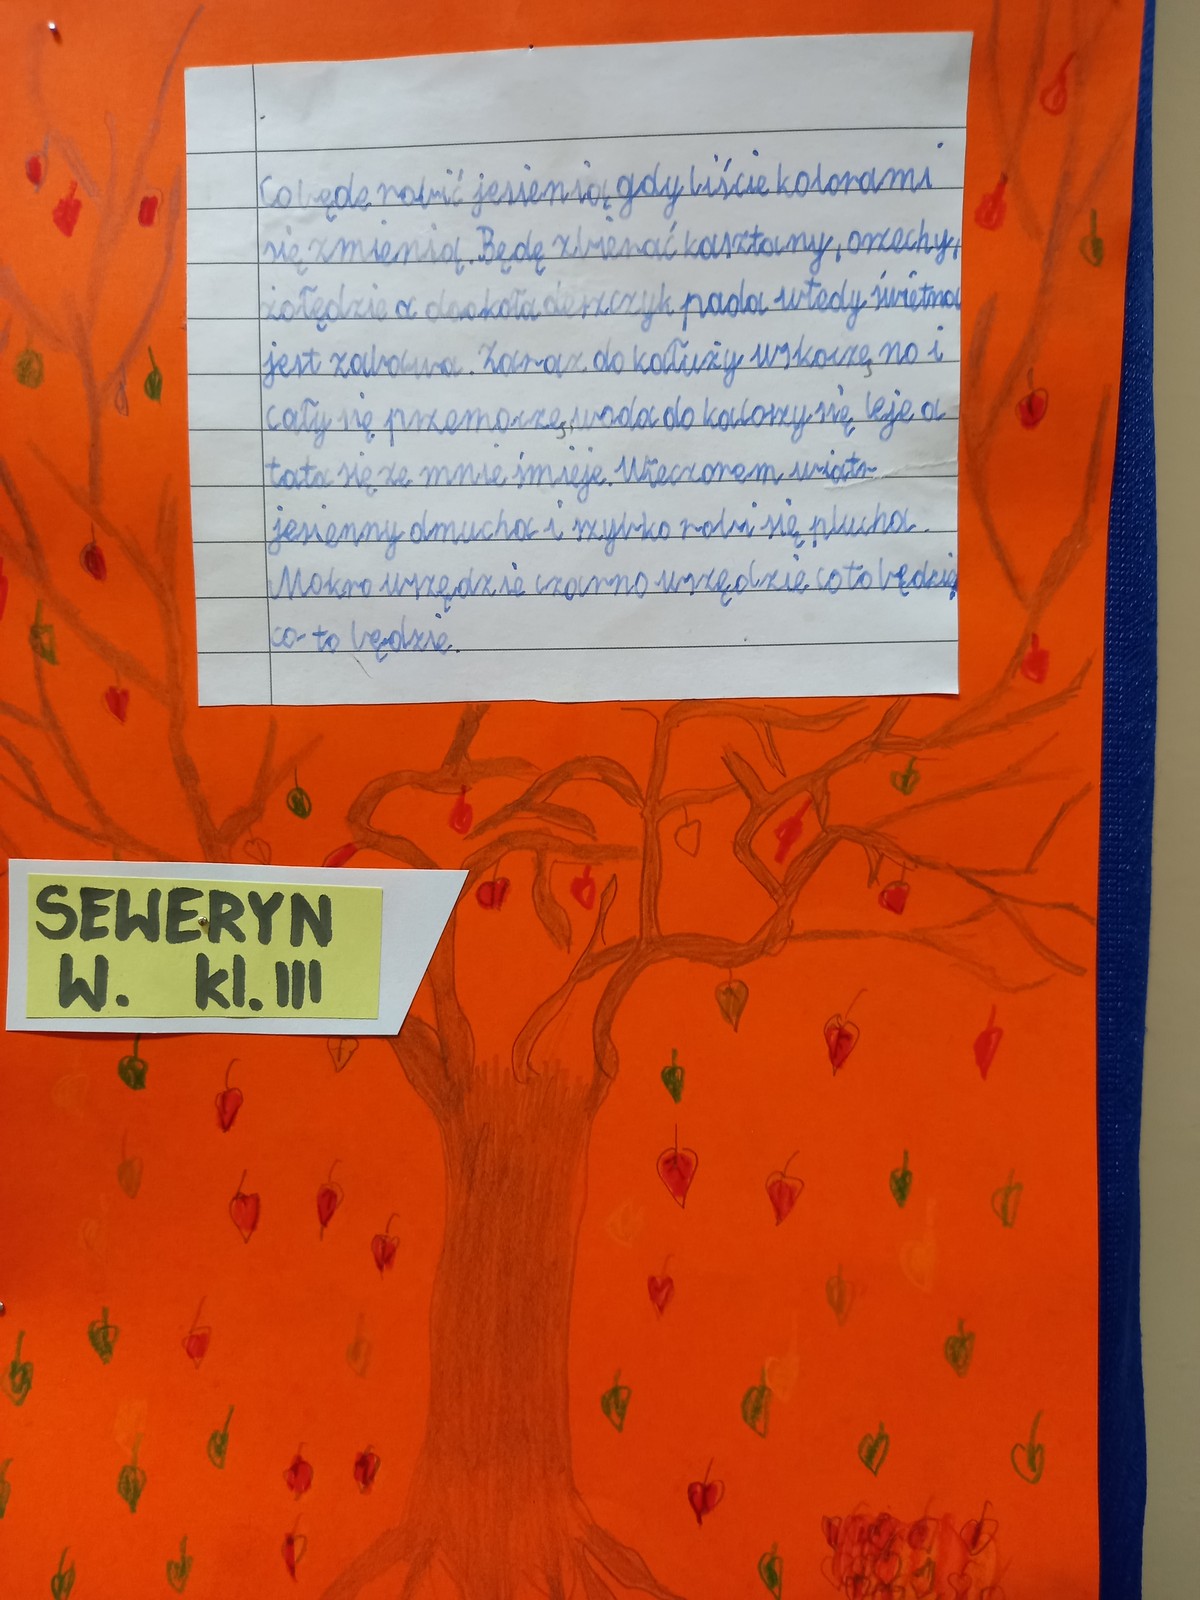 Co będe robić jesienią gdy liście kolorami
się zmienią. Będę zbierać kasztany, orzechy,
żołędzie a dookoła deszczyk pada wtedy świetna
jest zabawa. Zaraz do kałuży wskoczę no i
cały się przemoczę, woda do kaloszy się leje a
tata się ze mnie śmieje. Wieczorem wiatr
jesienny dmucha i szybko robi się plucha.
Mokro wszędzie czarno wszędzie co to będzie
co to będzie.
SEWERYN
W. kl. III